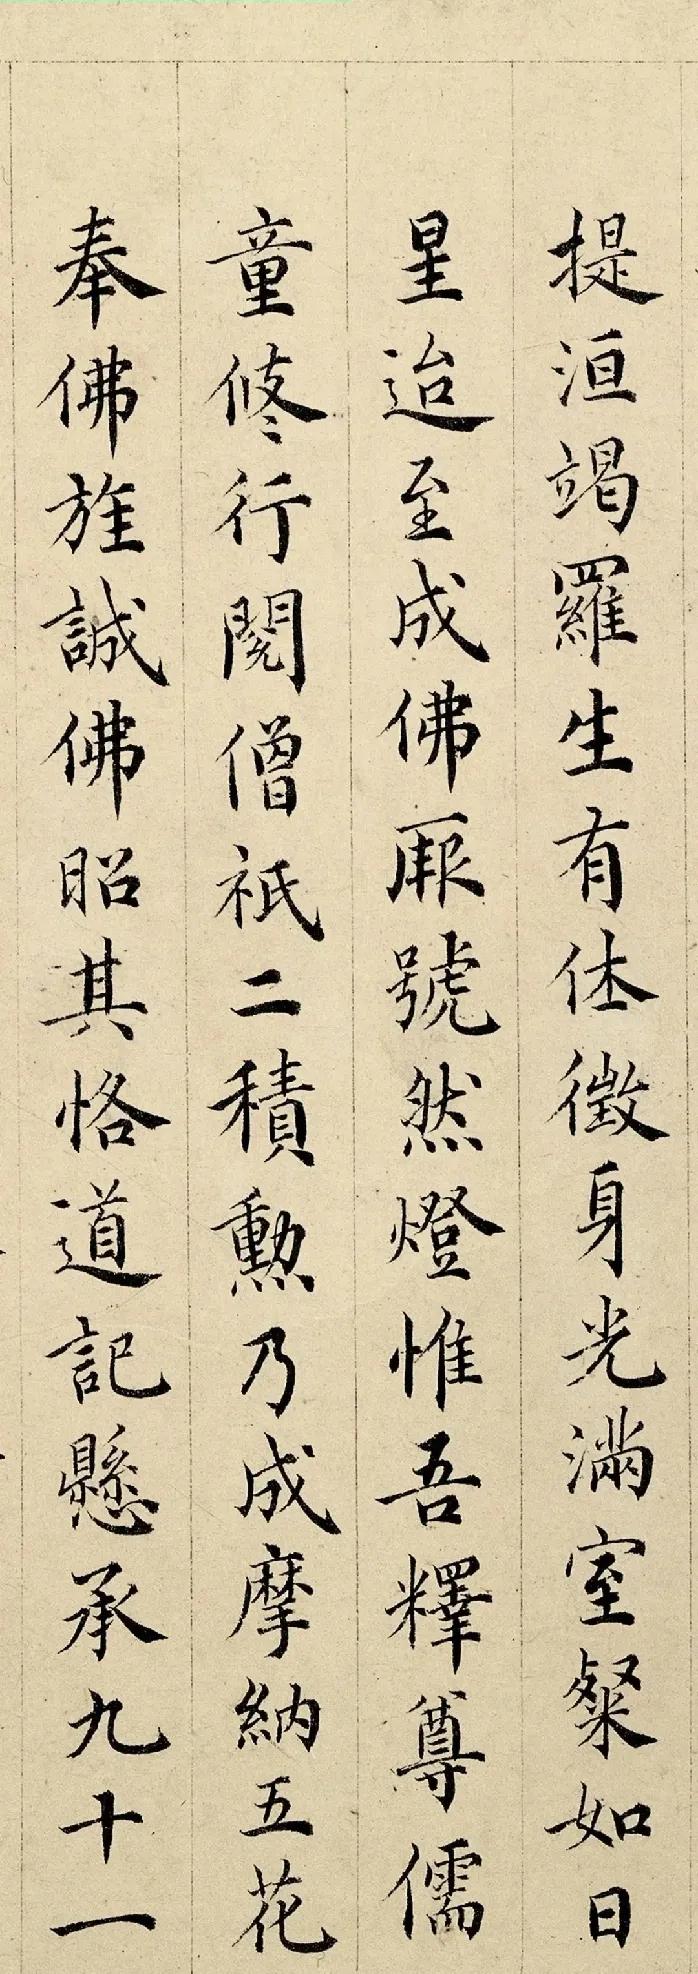 提洹竭羅生有休徵身光滿室粲如日
星迨至成佛厥號然燈惟吾釋尊儒
童修行閱僧祇二積勳乃成摩納五花
奉佛旌誠佛昭其恪道記懸承九十一